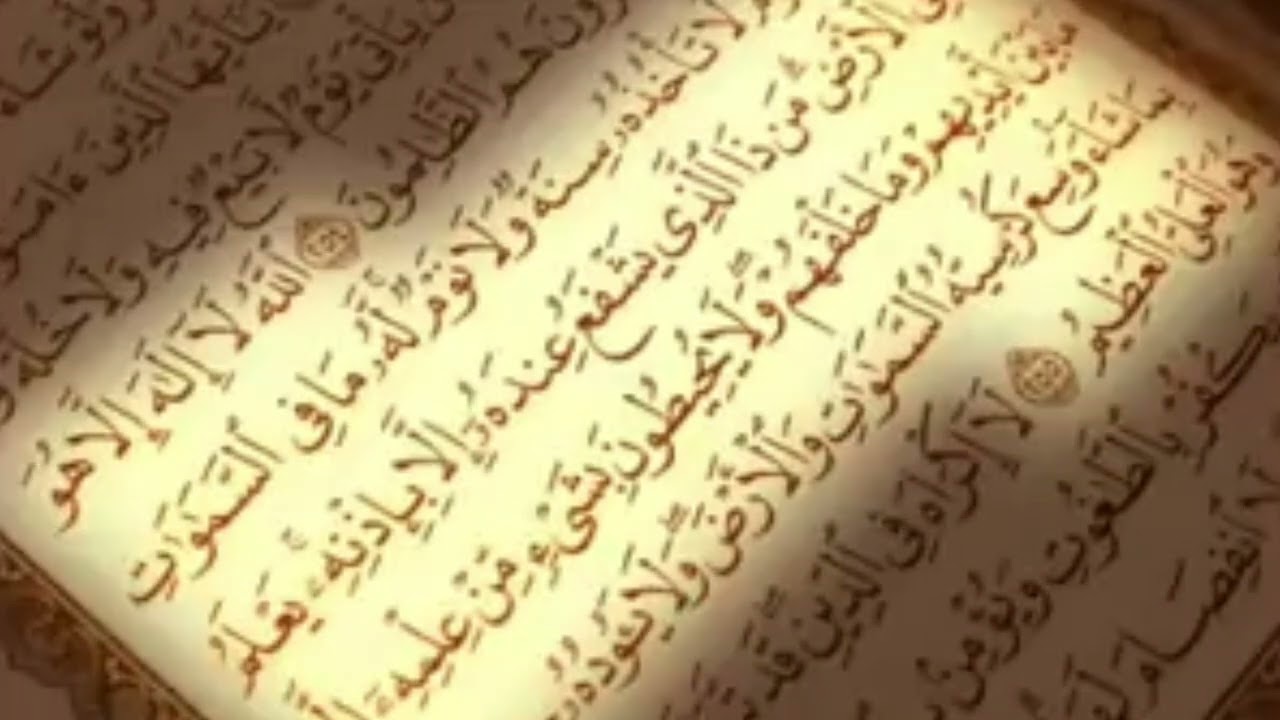 وَلَوْ شَآءَ
يَٰٓأَيُّهَا ٱلَّذِينَ ءَامَنُوٓا۟
يَأْتِىَ يَوْمٌ لَّا بَيْعٌ فِيهِ وَلَا خُلَّةٌ
هُمُ ٱلظَّٰلِمُونَ ٢٥٤ ٱللَّهُ لَآ إِلَٰهَ إِلَّا هُوَ
لَا تَأْخُذُهُۥ سِنَةٌ وَلَا نَوْمٌ ۚ لَّهُۥ مَا فِى ٱلسَّمَٰوَٰتِ
ٱلْأَرْضِ ۗ مَن ذَا ٱلَّذِى يَشْفَعُ عِندَهُۥٓ إِلَّا بِإِذْنِهِۦ ۚ يَعْلَمُ
بَيْنَ أَيْدِيهِمْ وَمَا خَلْفَهُمْ ۖ وَلَا يُحِيطُونَ بِشَىْءٍ مِّنْ عِلْمِهِۦٓ إِلَّا
بِمَا شَآءَ ۚ وَسِعَ كُرْسِيُّهُ ٱلسَّمَٰوَٰتِ وَٱلْأَرْضَ ۖ وَلَا يَـُٔودُهُۥ
وَهُوَ ٱلْعَلِىُّ ٱلْعَظِيمُ ٢٥٥ لَآ إِكْرَاهَ فِى ٱلدِّينِ ۖ قَد
يَكْفُرْ بِٱلطَّٰغُوتِ وَيُؤْمِنۢ
لَا ٱنفِصَامَ لَهَا